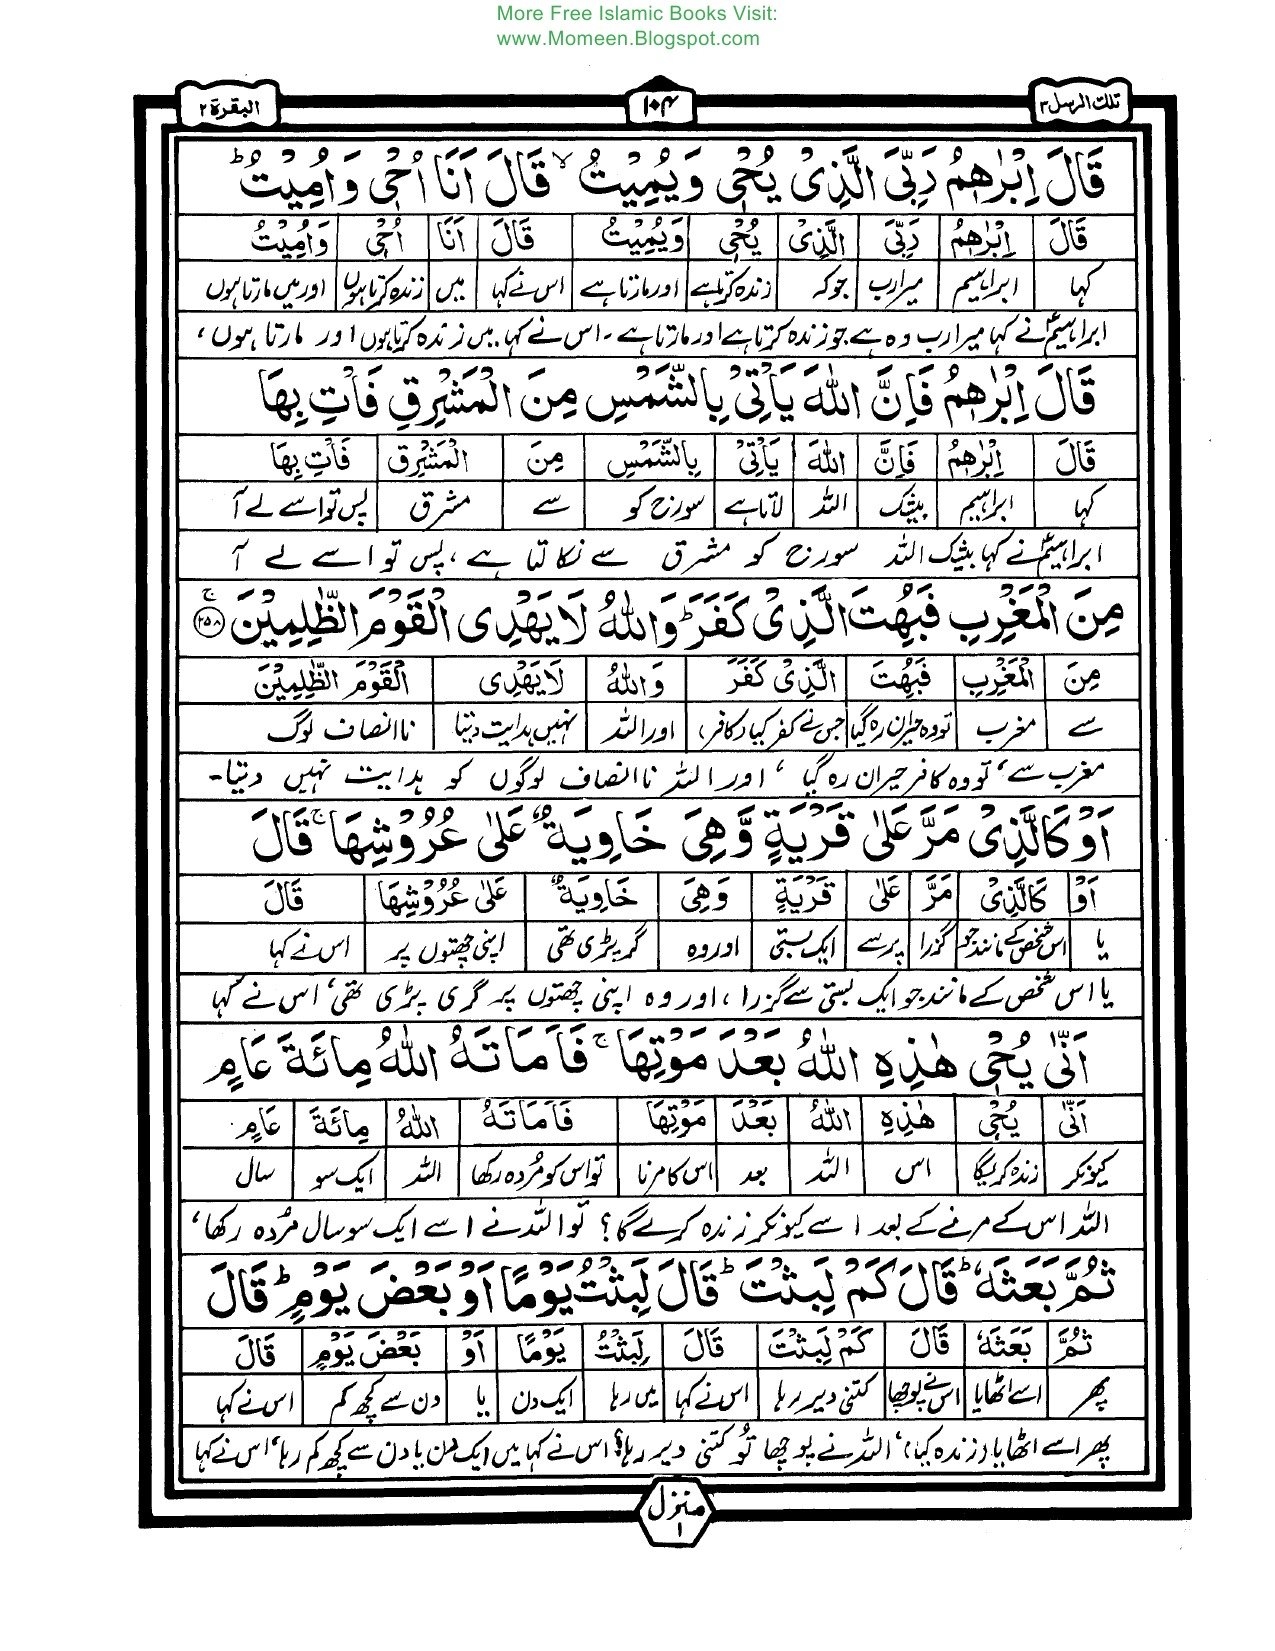 More Free Islamic Books Visit:
www.Momeen.Blogspot.com
تلك الرسل ۳
۱۰۴
البقرة ۲
قَالَ اِبْرٰهٖمُ رَبِّیَ الَّذِیْ یُحْیٖ وَیُمِیْتُ ۙ قَالَ اَنَا اُحْیٖ وَاُمِیْتُ ؕ
قَالَ اِبْرٰهٖمُ رَبِّیَ الَّذِیْ یُحْیٖ وَیُمِیْتُ قَالَ اَنَا اُحْیٖ وَاُمِیْتُ
کہا ابراہیم میرارب جوکہ زندہ کرتا ہے اور مارتا ہے اس نے کہا میں زندہ کرتا ہوں اور میں مارتا ہوں
ابراہیمؑ نے کہا میرا رب وہ ہے جو زندہ کرتا ہے اور مارتا ہے۔ اس نے کہا میں زندہ کرتا ہوں اور مارتا ہوں،
قَالَ اِبْرٰهٖمُ فَاِنَّ اللّٰهَ یَاْتِیْ بِالشَّمْسِ مِنَ الْمَشْرِقِ فَاْتِ بِهَا
قَالَ اِبْرٰهٖمُ فَاِنَّ اللّٰهَ یَاْتِیْ بِالشَّمْسِ مِنَ الْمَشْرِقِ فَاْتِ بِهَا
کہا ابراہیم بیشک اللہ لاتا ہے سورج کو سے مشرق پس تو اسے لے آ
ابراہیمؑ نے کہا بیشک اللہ سورج کو مشرق سے نکالتا ہے، پس تو اسے لے آ
مِنَ الْمَغْرِبِ فَبُهِتَ الَّذِیْ كَفَرَ ؕ وَاللّٰهُ لَا یَهْدِی الْقَوْمَ الظّٰلِمِیْنَ ۚ ﴿۲۵۸﴾
مِنَ الْمَغْرِبِ فَبُهِتَ الَّذِیْ كَفَرَ وَاللّٰهُ لَا یَهْدِی الْقَوْمَ الظّٰلِمِیْنَ
سے مغرب تو وہ حیران رہ گیا جس نے کفر کیا (کافر) اور اللہ نہیں ہدایت دیتا ناانصاف لوگ
مغرب سے، تو وہ کافر حیران رہ گیا، اور اللہ ناانصاف لوگوں کو ہدایت نہیں دیتا۔
اَوْ كَالَّذِیْ مَرَّ عَلٰی قَرْیَةٍ وَّهِیَ خَاوِیَةٌ عَلٰی عُرُوْشِهَا ۚ قَالَ
اَوْ كَالَّذِیْ مَرَّ عَلٰی قَرْیَةٍ وَّهِیَ خَاوِیَةٌ عَلٰی عُرُوْشِهَا قَالَ
یا اس شخص کے مانند جو گزرا پر سے ایک بستی اور وہ گر پڑی تھی اپنی چھتوں پر اس نے کہا
یا اس شخص کے مانند جو ایک بستی سے گزرا، اور وہ اپنی چھتوں پر گری پڑی تھی، اس نے کہا
اَنّٰی یُحْیٖ هٰذِهِ اللّٰهُ بَعْدَ مَوْتِهَا ۚ فَاَمَاتَهُ اللّٰهُ مِائَةَ عَامٍ
اَنّٰی یُحْیٖ هٰذِهِ اللّٰهُ بَعْدَ مَوْتِهَا فَاَمَاتَهُ اللّٰهُ مِائَةَ عَامٍ
کیونکر زندہ کریگا اس اللہ بعد اس کا مرنا تو اس کو مُردہ رکھا اللہ ایک سو سال
اللہ اس کے مرنے کے بعد اسے کیونکر زندہ کرے گا؟ تو اللہ نے اسے ایک سو سال مُردہ رکھا،
ثُمَّ بَعَثَهٗ ؕ قَالَ كَمْ لَبِثْتَ ؕ قَالَ لَبِثْتُ یَوْمًا اَوْ بَعْضَ یَوْمٍ ؕ قَالَ
ثُمَّ بَعَثَهٗ قَالَ كَمْ لَبِثْتَ قَالَ لَبِثْتُ یَوْمًا اَوْ بَعْضَ یَوْمٍ قَالَ
پھر اسے اٹھایا اس نے پوچھا کتنی دیر رہا اس نے کہا میں رہا ایک دن یا دن سے کچھ کم اس نے کہا
پھر اسے اٹھایا (زندہ کیا)، اللہ نے پوچھا تُو کتنی دیر رہا؟ اس نے کہا میں ایک دن یا دن سے کچھ کم رہا، اس نے کہا
منزل ۱